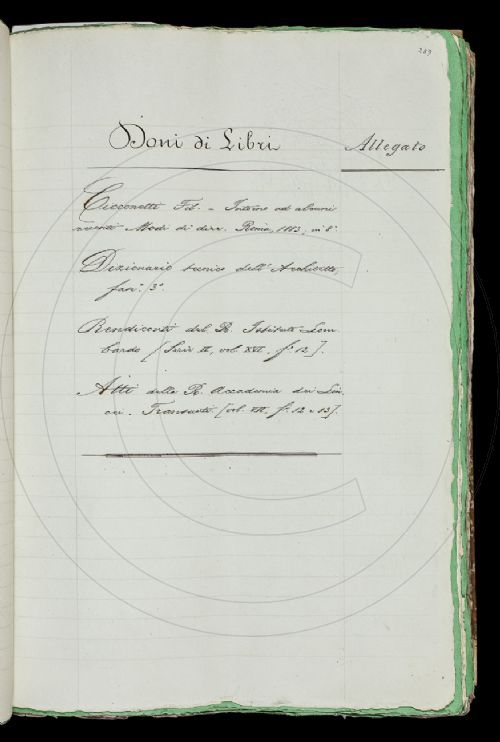 203
Doni di Libri
Allegato
Cicconetti Fil. - Intorno ad alcuni
Modi di dire. Roma, 1883, in 8°.
Dizionario tecnico dell' Architetto,
fasc. 3°.
Rendiconti del R. Istituto Lom
bardo [Serie II, vol. XVI. f. 12].
Atti della R. Accademia dei Lin
cei. Transunti [vol. VII. f. 12 e 13].